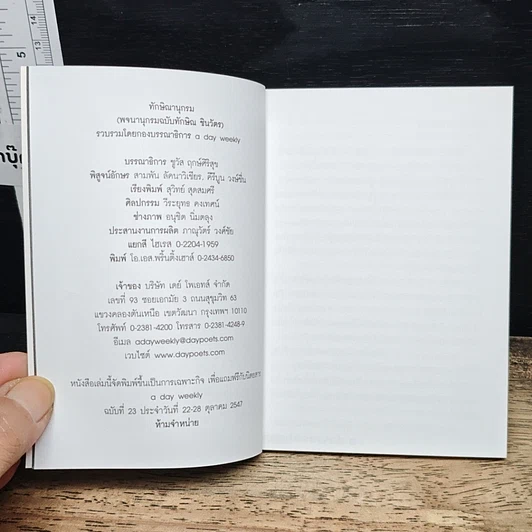 ทักษิณานุกรม
(พจนานุกรมฉบับทักษิณ ชินวัตร)
รวบรวมโดยกองบรรณาธิการ a day weekly
บรรณาธิการ ชูวัส ฤกษ์ศิริสุข
พิสูจน์อักษร สามพัน ลัคนาวิเชียร, คีรีบูน วงษ์ชื่น
เรียงพิมพ์ สุวิทย์ สุดสมศรี
ศิลปกรรม วีระยุทธ คงเทศน์
ช่างภาพ อนุชิต นิ่มตลุง
ประสานงานการผลิต ภาณุวัตร์ วงศ์ชัย
แยกสี ไฮเรส 0-2204-1959
พิมพ์ โอ.เอส.พริ้นติ้งเฮาส์ 0-2434-6850
เจ้าของ บริษัท เดย์ โพเอทส์ จำกัด
เลขที่ 93 ซอยเอกมัย 3 ถนนสุขุมวิท 63
แขวงคลองตันเหนือ เขตวัฒนา กรุงเทพฯ 10110
โทรศัพท์ 0-2381-4200 โทรสาร 0-2381-4248-9
อีเมล adayweekly@daypoets.com
เวบไซต์ www.daypoets.com
หนังสือเล่มนี้จัดพิมพ์ขึ้นเป็นการเฉพาะกิจ เพื่อแถมฟรีกับนิตยสาร
a day weekly
ฉบับที่ 23 ประจำวันที่ 22-28 ตุลาคม 2547
ห้ามจำหน่าย
5
13
14